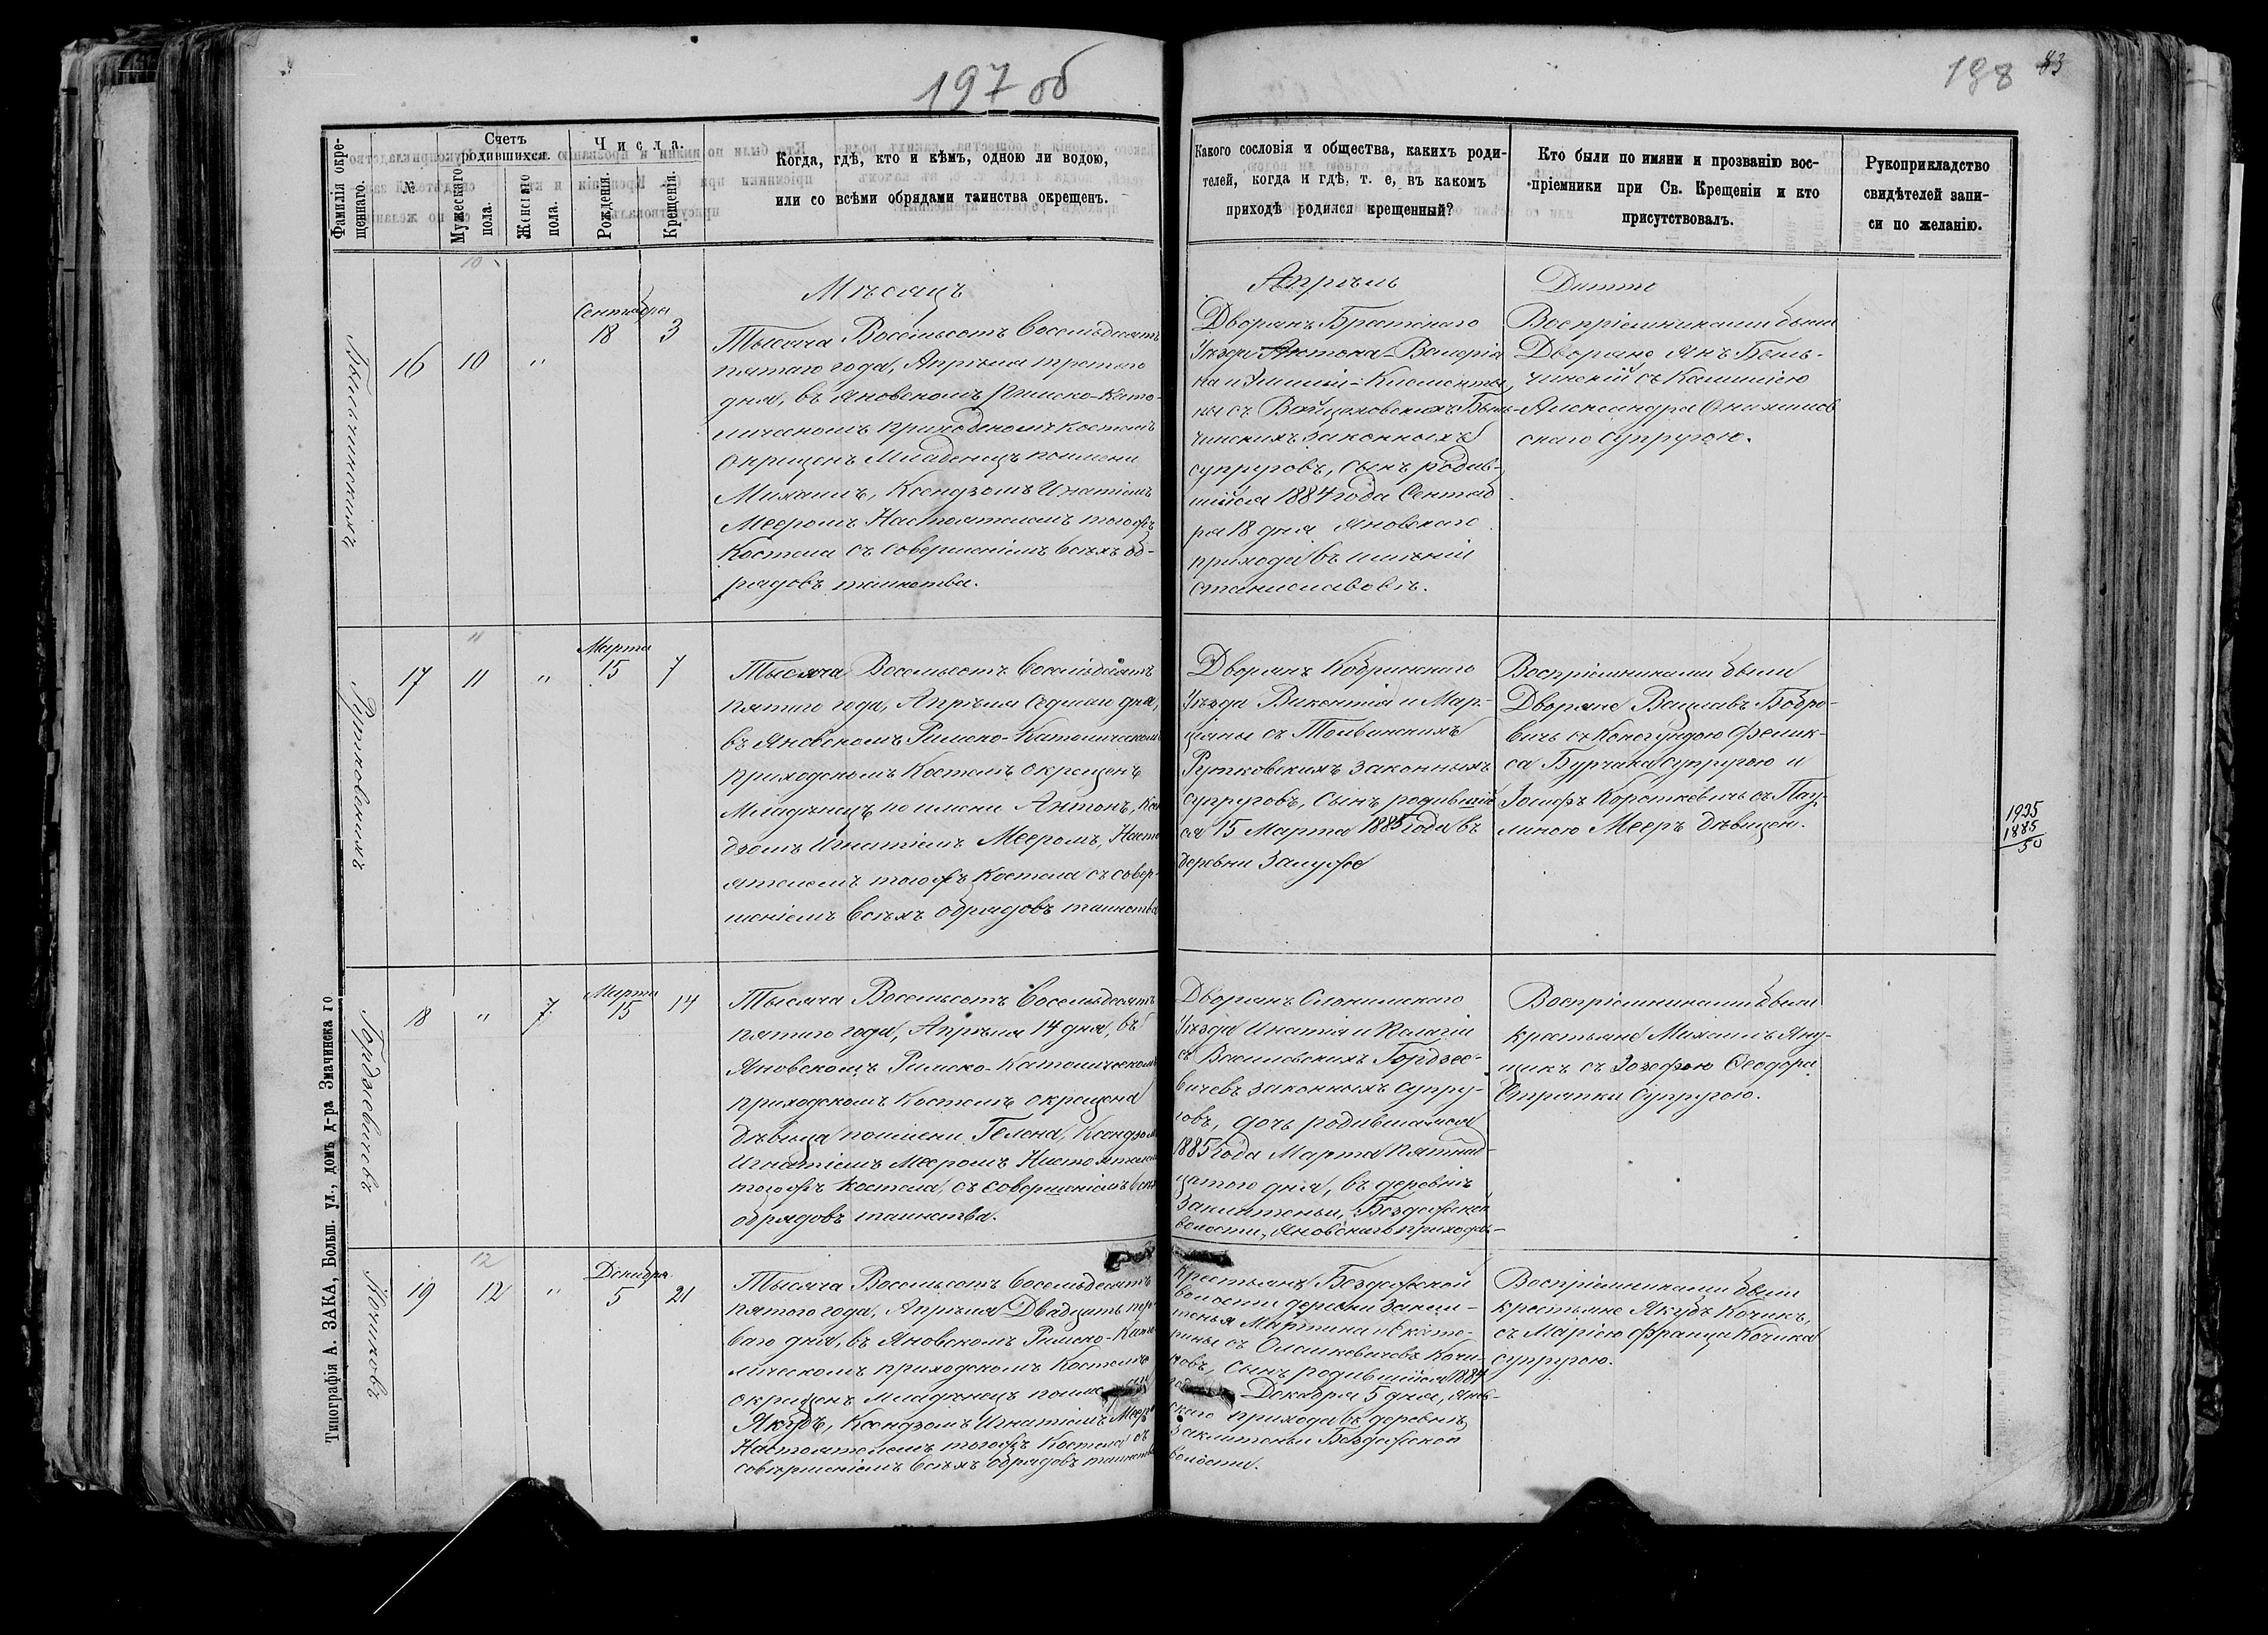 197 об
188 83
Фамилія окре-
щеннаго.
№
Счетъ
родившихся.
Мужескаго
пола.
Женскаго
пола.
Числа.
Рожденія.
Крещенія.
Когда, гдѣ, кто и кѣмъ, одною ли водою,
или со всѣми обрядами таинства окрещенъ.
Какого сословія и общества, какихъ роди-
телей, когда и гдѣ, т. е, въ какомъ
приходѣ родился крещенный?
Кто были по имяни и прозванію вос-
пріемники при Св. Крещеніи и кто
присутствовалъ.
Рукоприкладство
свидѣтелей запи-
си по желанію.
Мѣсяцъ
Апрѣль
16
10
10
"
Сентября
18
3
Тысяча Восемьсотъ восемьдесятъ
пятаго года, Апрѣля третьяго
дня, въ Яновскомъ Римско-Като-
лическомъ приходскомъ костелѣ
окрещенъ Младенецъ по имени
Михаилъ, Ксендзомъ Игнатіемъ
Мееромъ Настоятелемъ тогожъ
Костела съ совершеніемъ всѣхъ об-
рядовъ таинства.
Дворянъ Брестскаго
Уѣзда Антона-Валерія
на и Эмиліи-Клементи
ны съ Войцеховскихъ
чинскихъ законныхъ
супруговъ, сынъ родив-
шійся 1884 года Сентяб
ря 18 дня Яновскаго
прихода въ имѣніи
Станиславовѣ.
Воспріемниками были
Дворяне Янъ
чинскій съ Камиліею
Александра
скаго супругою.
Рутковскихъ
17
11
11
"
Марта
15
7
Тысяча Восемьсотъ восемьдесятъ
пятаго года, Апрѣля седмаго дня,
въ Яновскомъ Римско-Католическомъ
приходскомъ Костелѣ окрещенъ
Младенецъ по имени Антонъ, Ксен
дзомъ Игнатіемъ Мееромъ, Насто
ятелемъ тогожъ Костела съ совер-
шеніемъ всѣхъ обрядовъ таинства
Дворянъ Кобринскаго
Уѣзда Викентія и Мар-
цяны съ Толвинскихъ
Рутковскихъ законныхъ
супруговъ, Сынъ родившій
ся 15 Марта 1885 года въ
деревни Залужье
Воспріемниками были
Дворяне Вацлавъ Бобро-
вичъ съ Конегундою Фелик-
са Бурчака супругою и
Іосифъ Короткевичъ съ Пау-
линою Мееръ дѣвицею.
1935
1885
50
18
"
7
Марта
15
14
Тысяча Восемьсотъ Восемьдесятъ
пятаго года, Апрѣля 14 дня, въ
Яновскомъ Римско-Католическомъ
приходскомъ Костелѣ окрещена
дѣвица по имени Гелена, Ксендзомъ
Игнатіемъ Мееромъ Настоятелемъ
тогожъ костела, съ совершеніемъ всѣхъ
обрядовъ таинства.
Дворянъ Слонимскаго
Уѣзда Игнатія и Пелагіи
съ Василевскихъ Гордзее-
вичевъ законныхъ супру-
говъ, дочь родившаяся
1885 года Марта пятнад-
цатого дня, въ деревнѣ
Заклитеньи, Бездѣжской
волости, Яновскаго прихода-
Воспріемниками были
крестьяне Михаилъ Яну-
щикъ съ Іозефою Ѳеодора
супругою.
Кочиковъ
19
12
12
"
Декабря
5
21
Тысяча Восемьсотъ восемьдесятъ
пятого года, Апрѣля Двадцать пер-
ваго дня, въ Яновскомъ Римско-Като-
лическомъ приходскомъ Костелѣ
окрещенъ младенецъ по имени
Якубъ, Ксендзомъ Игнатіемъ Меер
Настоятелемъ тогожъ Костела съ
совершеніемъ всѣхъ обрядовъ таинства
Крестьянъ Бездѣжской
волости деревни Закли-
тенья Мартина и Екате-
рины съ Олешкевичовъ Кочи-
ковъ, сынъ родившійся 1884
Декабря 5 дня, Янов-
скаго прихода въ деревнѣ
Заклитеньи Бездѣжской
волости.
Воспріемниками были
крестьяне Якубъ Кочикъ,
съ Маріею Франца Кочика
супругою.
Типографія А. ЗАКА, Больш. ул., домъ д-ра Значинска го